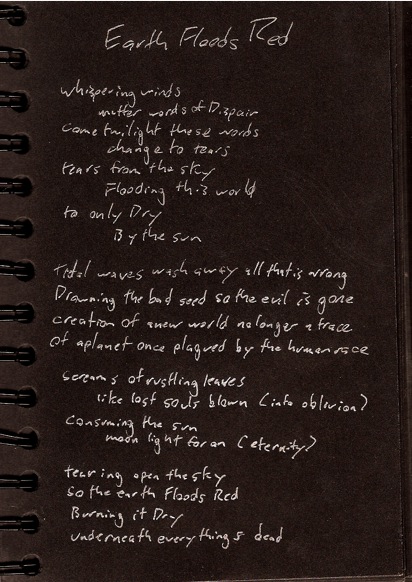 Earth Floods Red
whispering winds
mutter words of Dispair
come twilight these words
change to tears
tears from the sky
Flooding this world
to only Dry
By the sun
Tidal waves wash away all that is wrong
Drowning the bad seed so the evil is gone
creation of a new world no longer a trace
Of a planet once plagued by the human race
screams of rustling leaves
like lost souls blown (into oblivion?)
Consuming the sun
moon light for an (eternity?)
tearing open the sky
so the earth Floods Red
Burning it Dry
underneath everything's dead